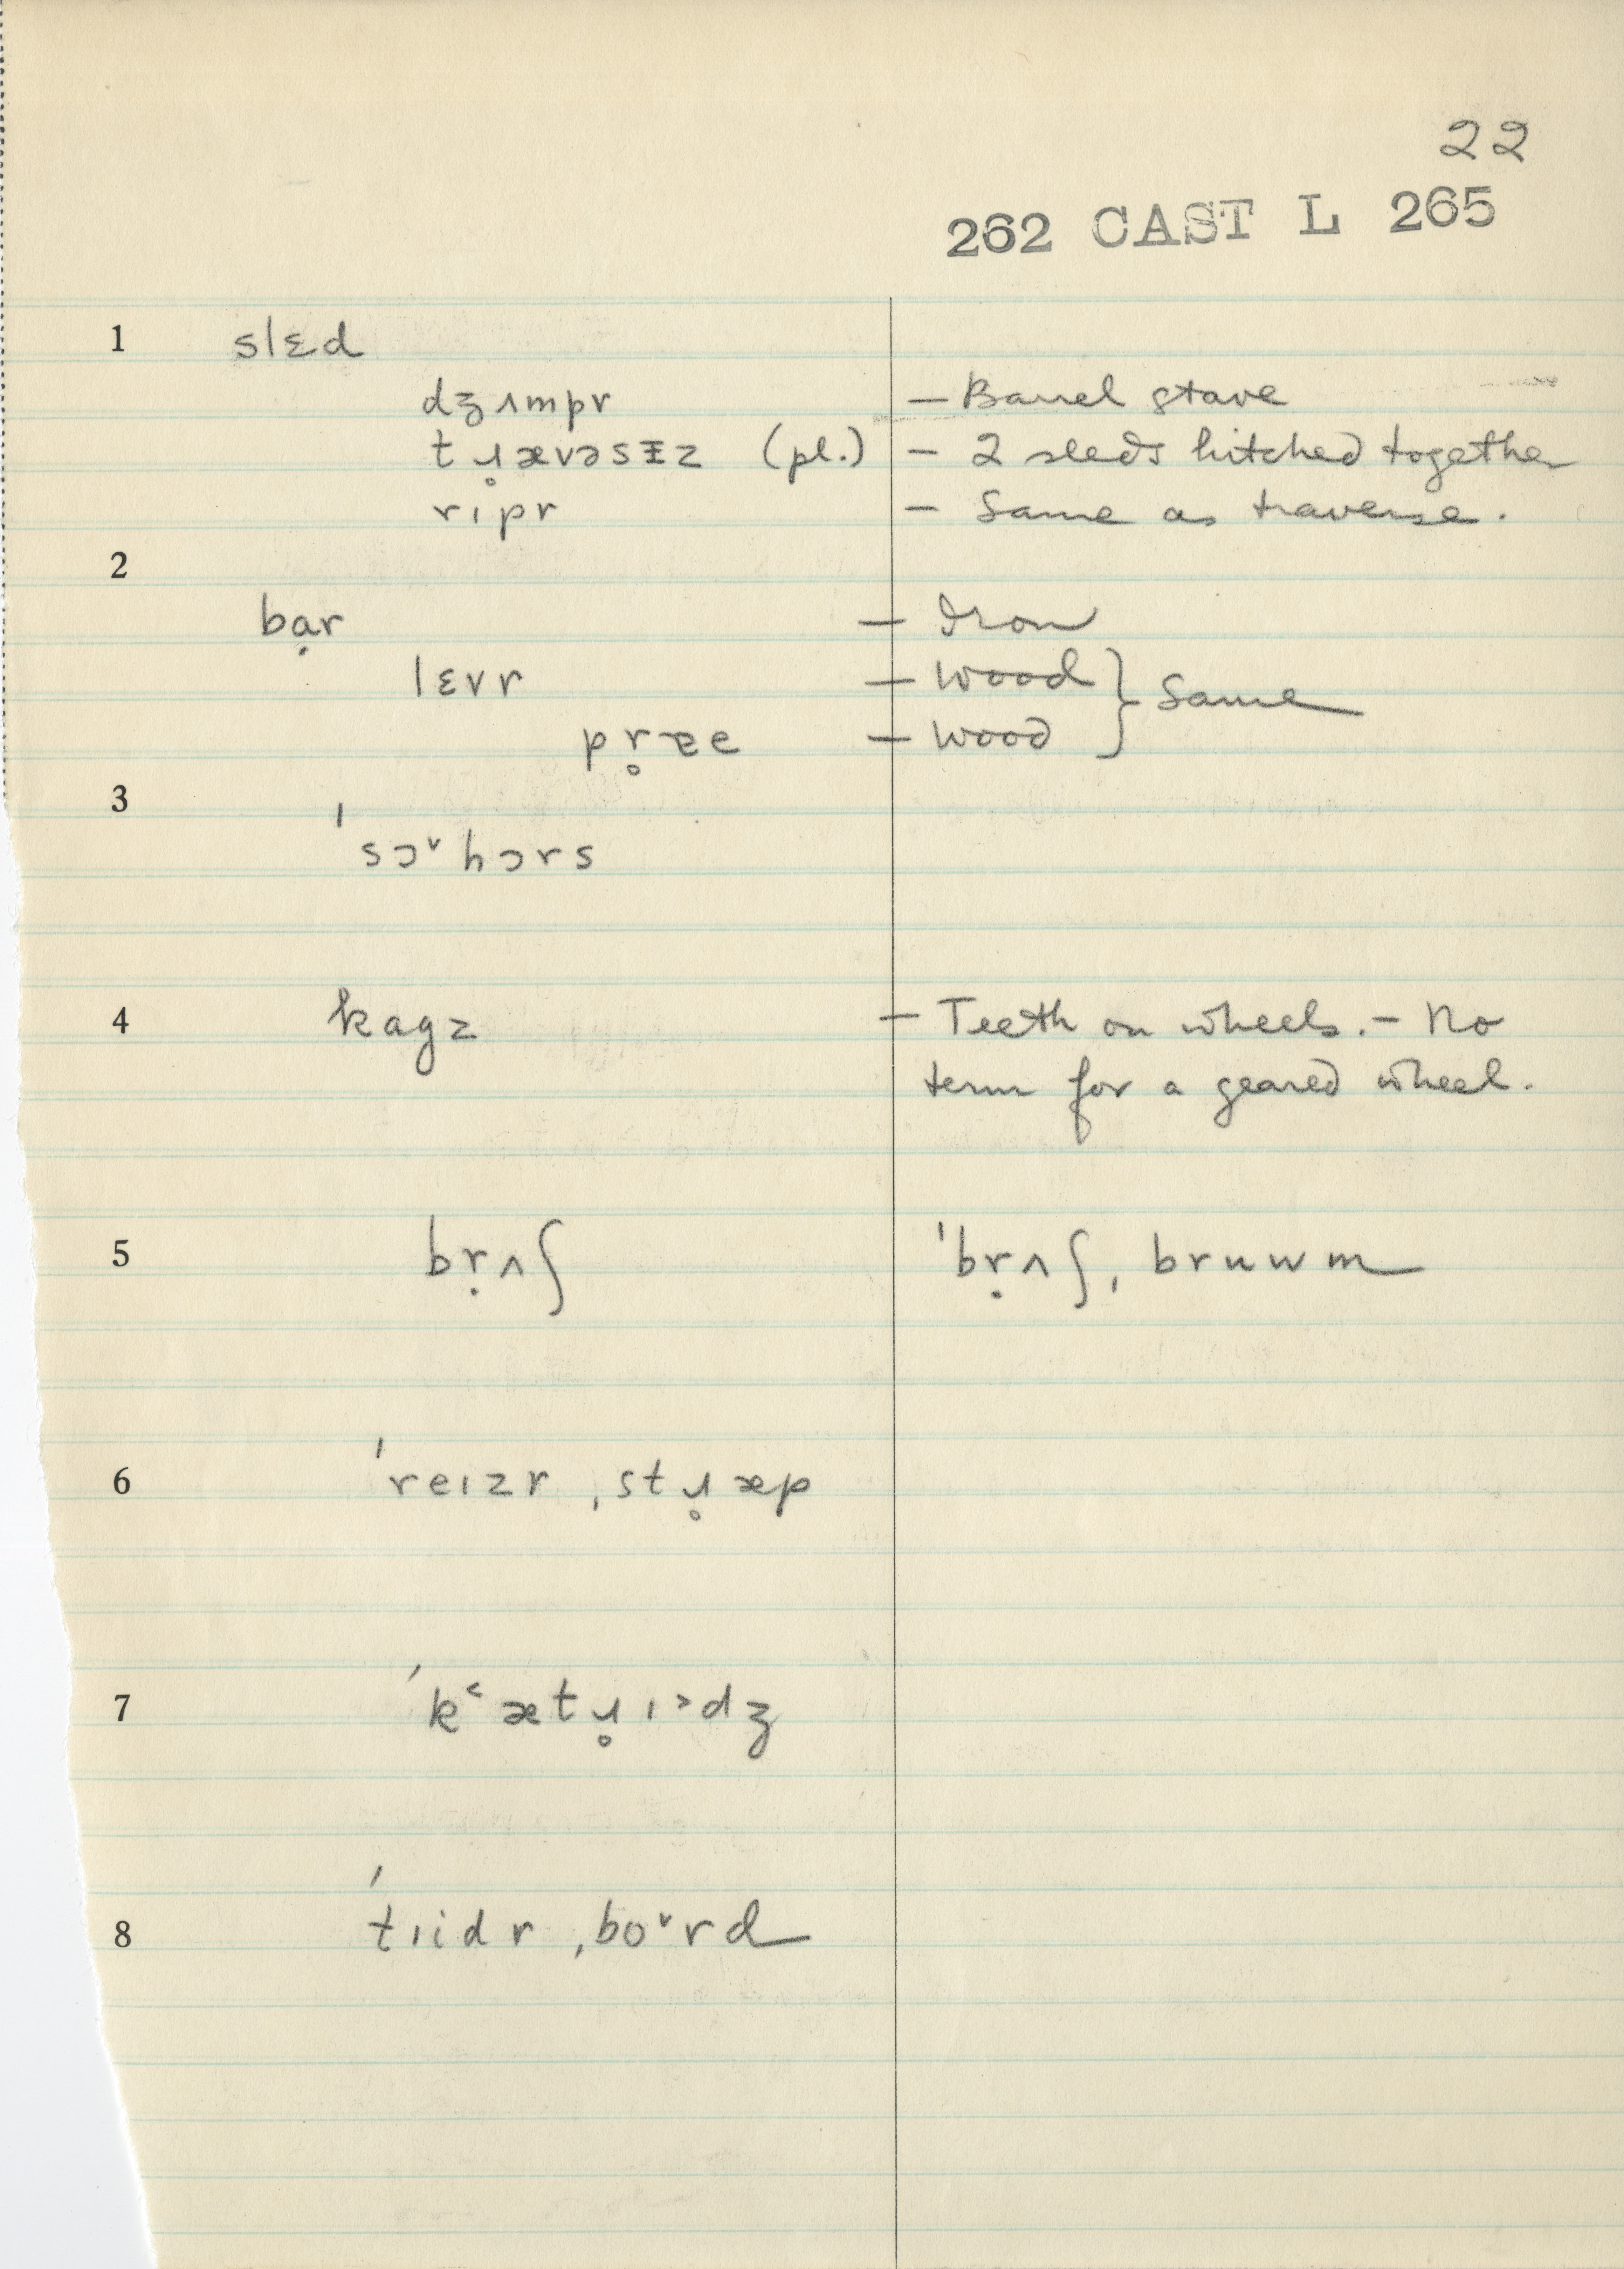 22
262 CAST L 265
1 slɛd
dʒʌmpr — Barrel stave
tɹ̥ævəsɪ̵z (pl.) — 2 sleds hitched together
rɪpr — Same as traverse.
2
bạr — Iron
lɛvr — Wood } Same
pr̥ɐe — Wood
3
ˈsɔ˅hɔrs
4 kagz — Teeth on wheels. — No
term for a geared wheel.
5 bṛʌʃ ˈbṛʌʃ, bruwm
6 ˈreɪzr ˌstɹ̥æp
7 ˈk˂ætɹ̥ɪ˃dʒ
8 ˈtɪidr ˌbo˅rd